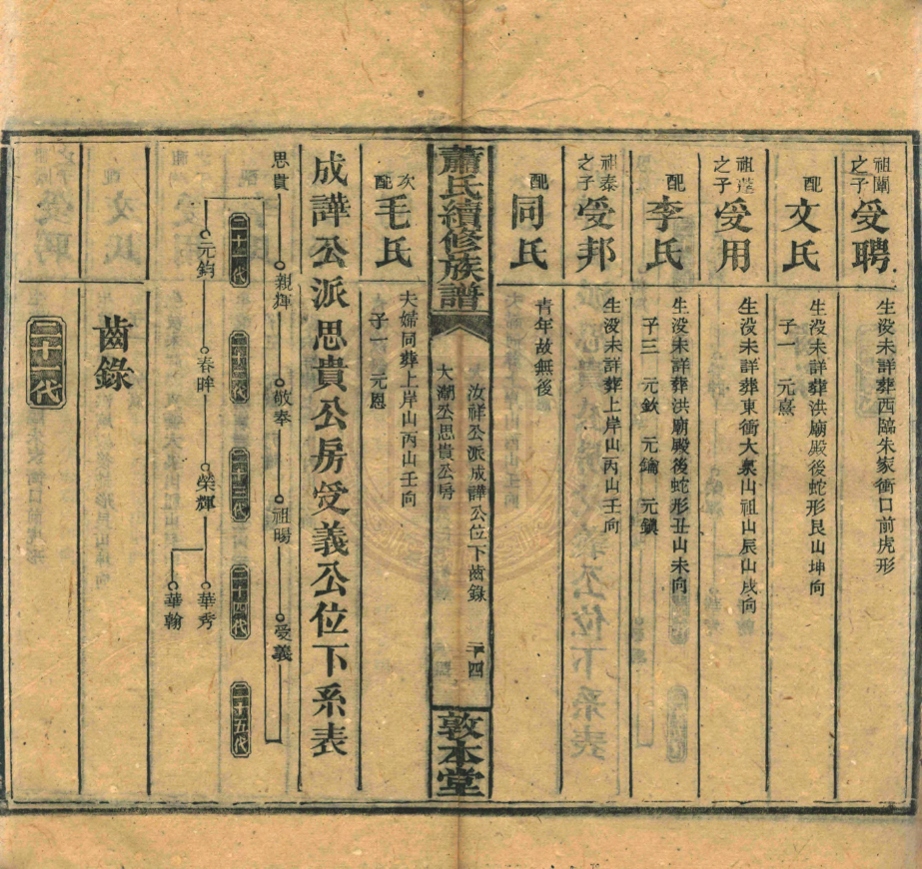 祖闡之子 受聘 生没未詳葬西臨朱家衝口前虎形
配 文氏 生没未詳葬洪廟殿後蛇形艮山坤向
子一 元熹
祖蓬之子 受用 生没未詳葬東衝大桒山祖山辰山戌向
配 李氏 生没未詳葬洪廟殿後蛇形丑山未向
子三 元欽 元鑰 元鎮
祖泰之子 受邦 生没未詳葬上岸山丙山壬向
配 同氏 青年故無後
蕭氏續修族譜
汝祥公派成譁公位下齒錄
大潮公思貴公房
二十四
敦本堂
次配 毛氏 夫婦同葬上岸山丙山壬向
子一 元恩
成譁公派思貴公房受義公位下系表
思貴 親揮 敬奉 祖暘 受義
二十一代 二十二代 二十三代 二十四代 二十五代
元鈞 春眸 榮輝 華秀
華翰
齒錄
二十一代